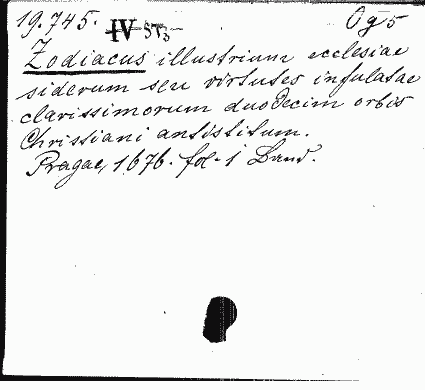 19.745. IV ST3 Og 5
Zodiacus illustrium ecclesiae
siderum seu virtutes infulatae
clarissimorum duodecim orbis
Christiani antistitum.
Pragae, 1676. fol. 1 Band.